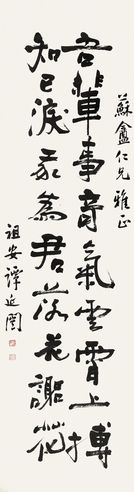 蘇盦仁兄雅正
吾輩事音氣雲霄上搏
知己淚氣為君落花謝花
祖安譚延闓